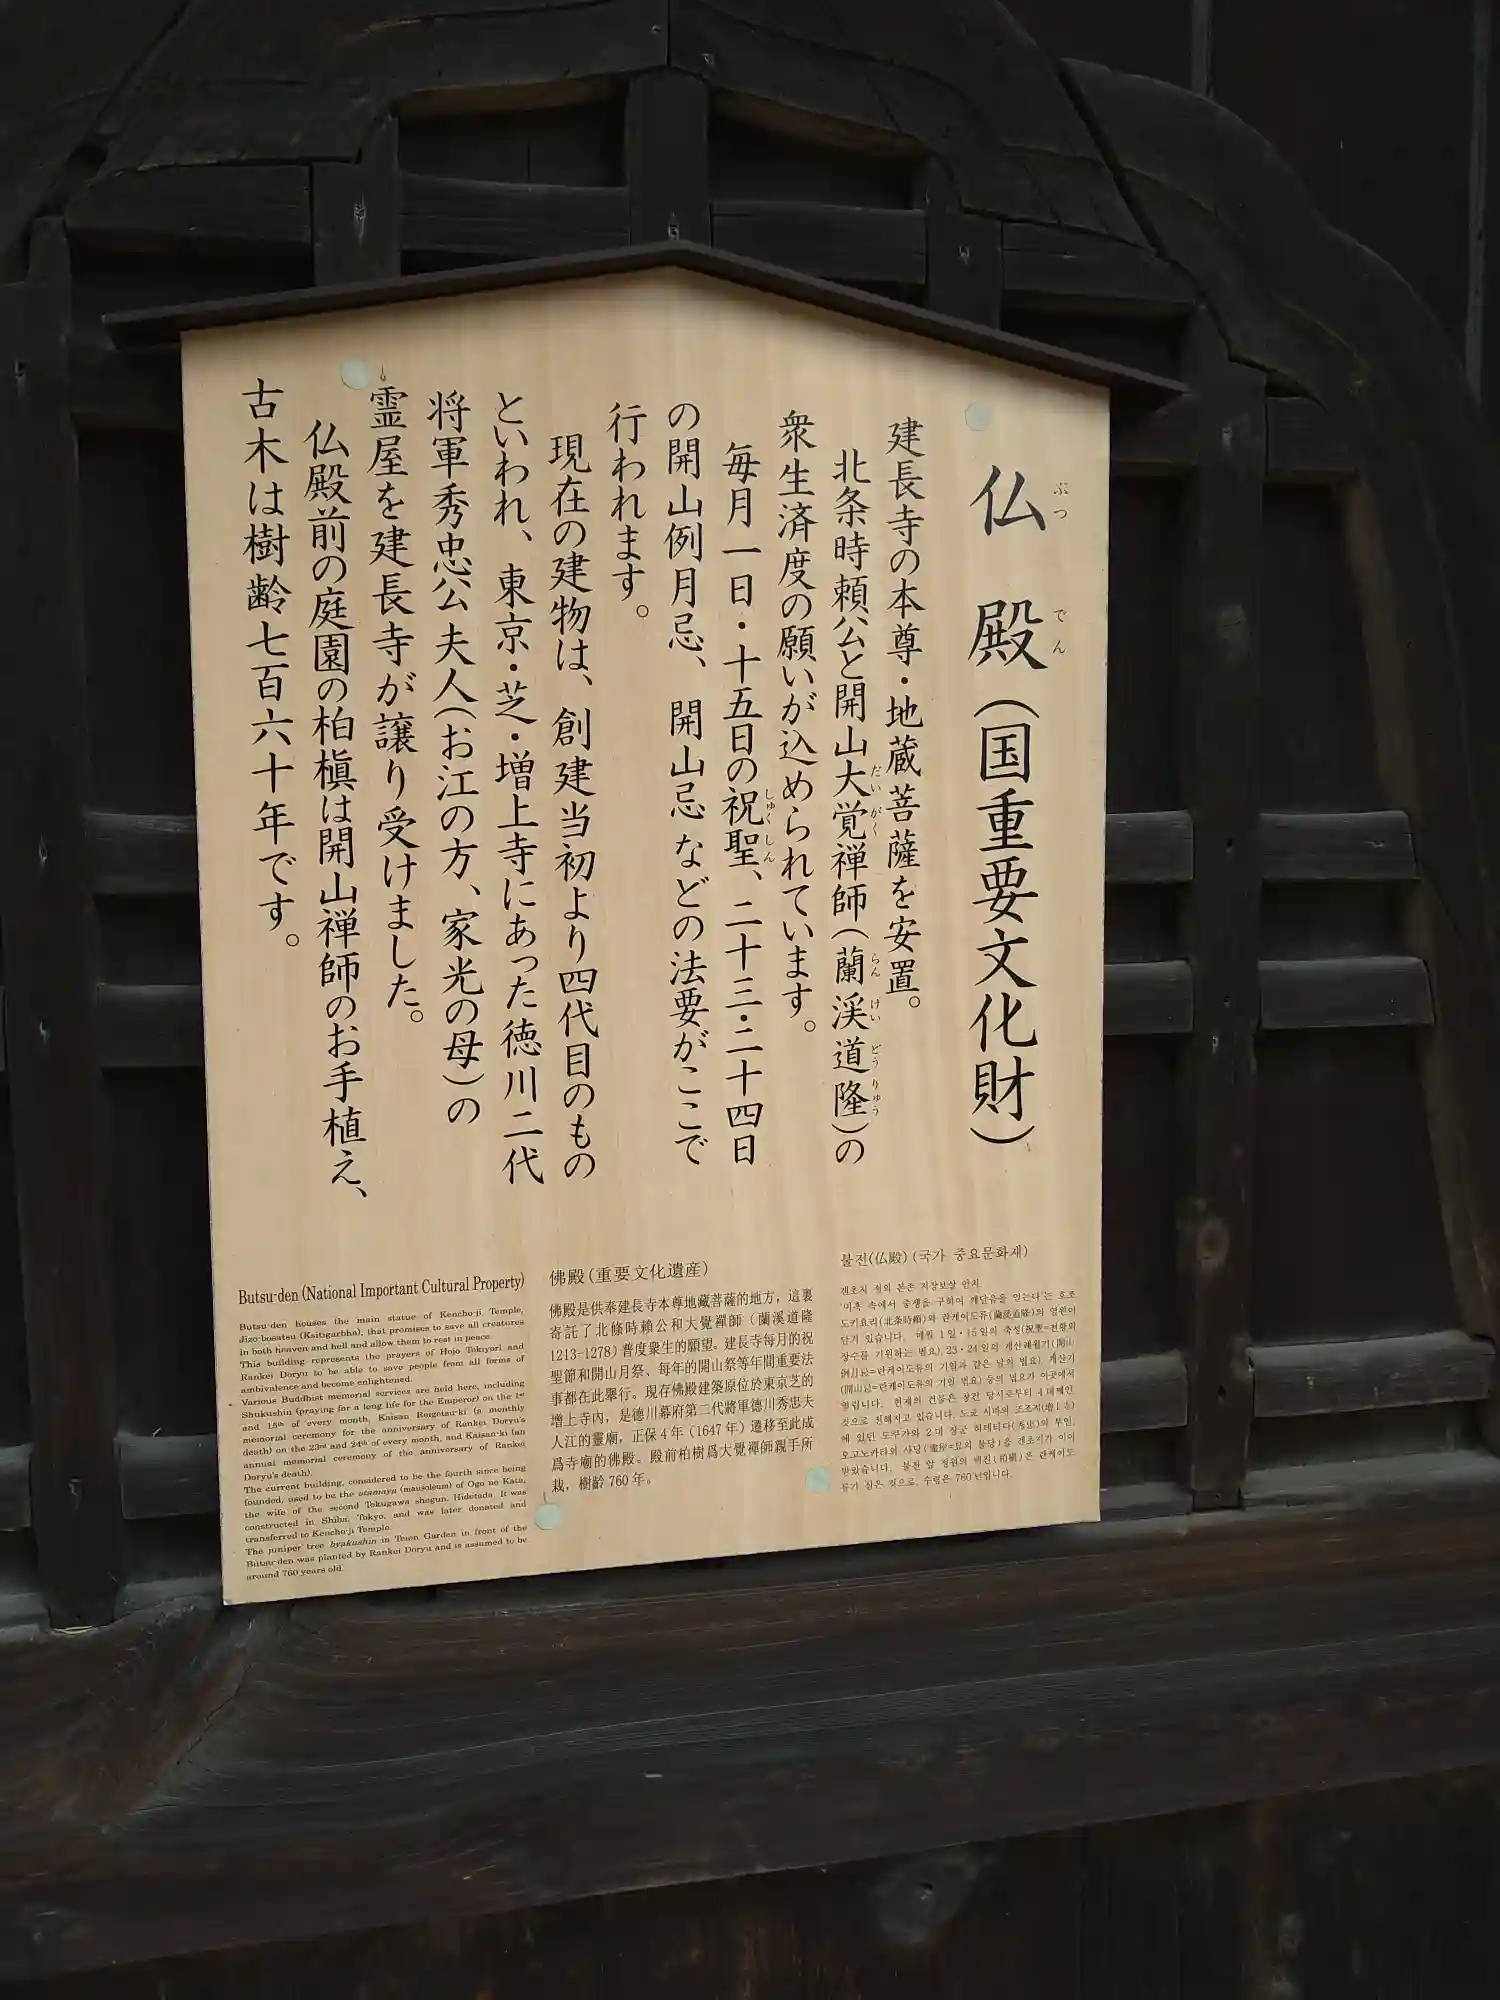 仏殿(国重要文化財)
ぶつ
でん
建長寺の本尊・地蔵菩薩を安置。
北条時頼公と開山大覚禅師(蘭渓道隆)の
だいがく
らんけいどうりゅう
衆生済度の願いが込められています。
毎月一日・十五日の祝聖、二十三・二十四日
しゅくしん
の開山例月忌、開山忌などの法要がここで
行われます。
現在の建物は、創建当初より四代目のもの
といわれ、東京・芝・増上寺にあった徳川二代
将軍秀忠公夫人(お江の方、家光の母)の
霊屋を建長寺が譲り受けました。
仏殿前の庭園の柏槇は開山禅師のお手植え、
古木は樹齢七百六十年です。
Butsu-den (National Important Cultural Property)
Butsu-den houses the main statue of Kencho-ji Temple,
Jizo-bosatsu (Ksitigarbha), that promises to save all creatures
in both heaven and hell and allow them to rest in peace.
This building represents the prayers of Hojo Tokiyori and
Rankei Doryu to be able to save people from all forms of
ambivalence and become enlightened.
Various Buddhist memorial services are held here, including
Shukushin (praying for a long life for the Emperor) on the 1st
and 15th of every month, Kaisan Reigetsu-ki (a monthly
memorial ceremony for the anniversary of Rankei Doryu's
death) on the 23rd and 24th of every month, and Kaisan-ki (an
annual memorial ceremony of the anniversary of Rankei
Doryu's death).
The current building, considered to be the fourth since being
founded, used to be the otamaya (mausoleum) of Ogo no Kata,
the wife of the second Tokugawa shogun, Hidetada. It was
constructed in Shiba, Tokyo, and was later donated and
transferred to Kencho-ji Temple.
The juniper tree byakushin in Teien Garden in front of the
Butsu-den was planted by Rankei Doryu and is assumed to be
around 760 years old.
佛殿(重要文化遺産)
佛殿是供奉建長寺本尊地藏菩薩的地方，這裏
寄託了北條時賴公和大覺禪師（蘭溪道隆
1213-1278）普度衆生的願望。建長寺每月的祝
聖節和開山月祭、每年的開山祭等年間重要法
事都在此舉行。現存佛殿建築原位於東京芝的
增上寺內，是德川幕府第二代將軍德川秀忠夫
人江的靈廟，正保4年（1647年）遷移至此成
爲寺廟的佛殿。殿前柏樹爲大覺禪師親手所
栽，樹齡760年。
불전(仏殿)(국가 중요문화재)
겐초지 절의 본존 지장보살 안치.
'미혹 속에서 중생을 구하여 깨달음을 얻는다'는 호조
도키요리(北条時頼)와 란케이도류(蘭渓道隆)의 염원이
담겨 있습니다. 매월 1일・15일의 축성(祝聖=천황의
장수를 기원하는 법요), 23・24일의 개산례월기(開山
例月忌=란케이도류의 기일과 같은 날의 법요), 개산기
(開山忌=란케이도류의 기일 법요) 등의 법요가 이곳에서
열립니다. 현재의 건물은 창건 당시로부터 4대째인
것으로 전해지고 있습니다. 도쿄 시바의 조조지(増上寺)
에 있던 도쿠가와 2대 장군 히데타다(秀忠)의 부인,
오고노카타의 사당(霊屋=묘의 불당)을 겐초지가 이어
받았습니다. 불전 앞 정원의 백진(柏槇)은 란케이도
류가 심은 것으로, 수령은 760년입니다.